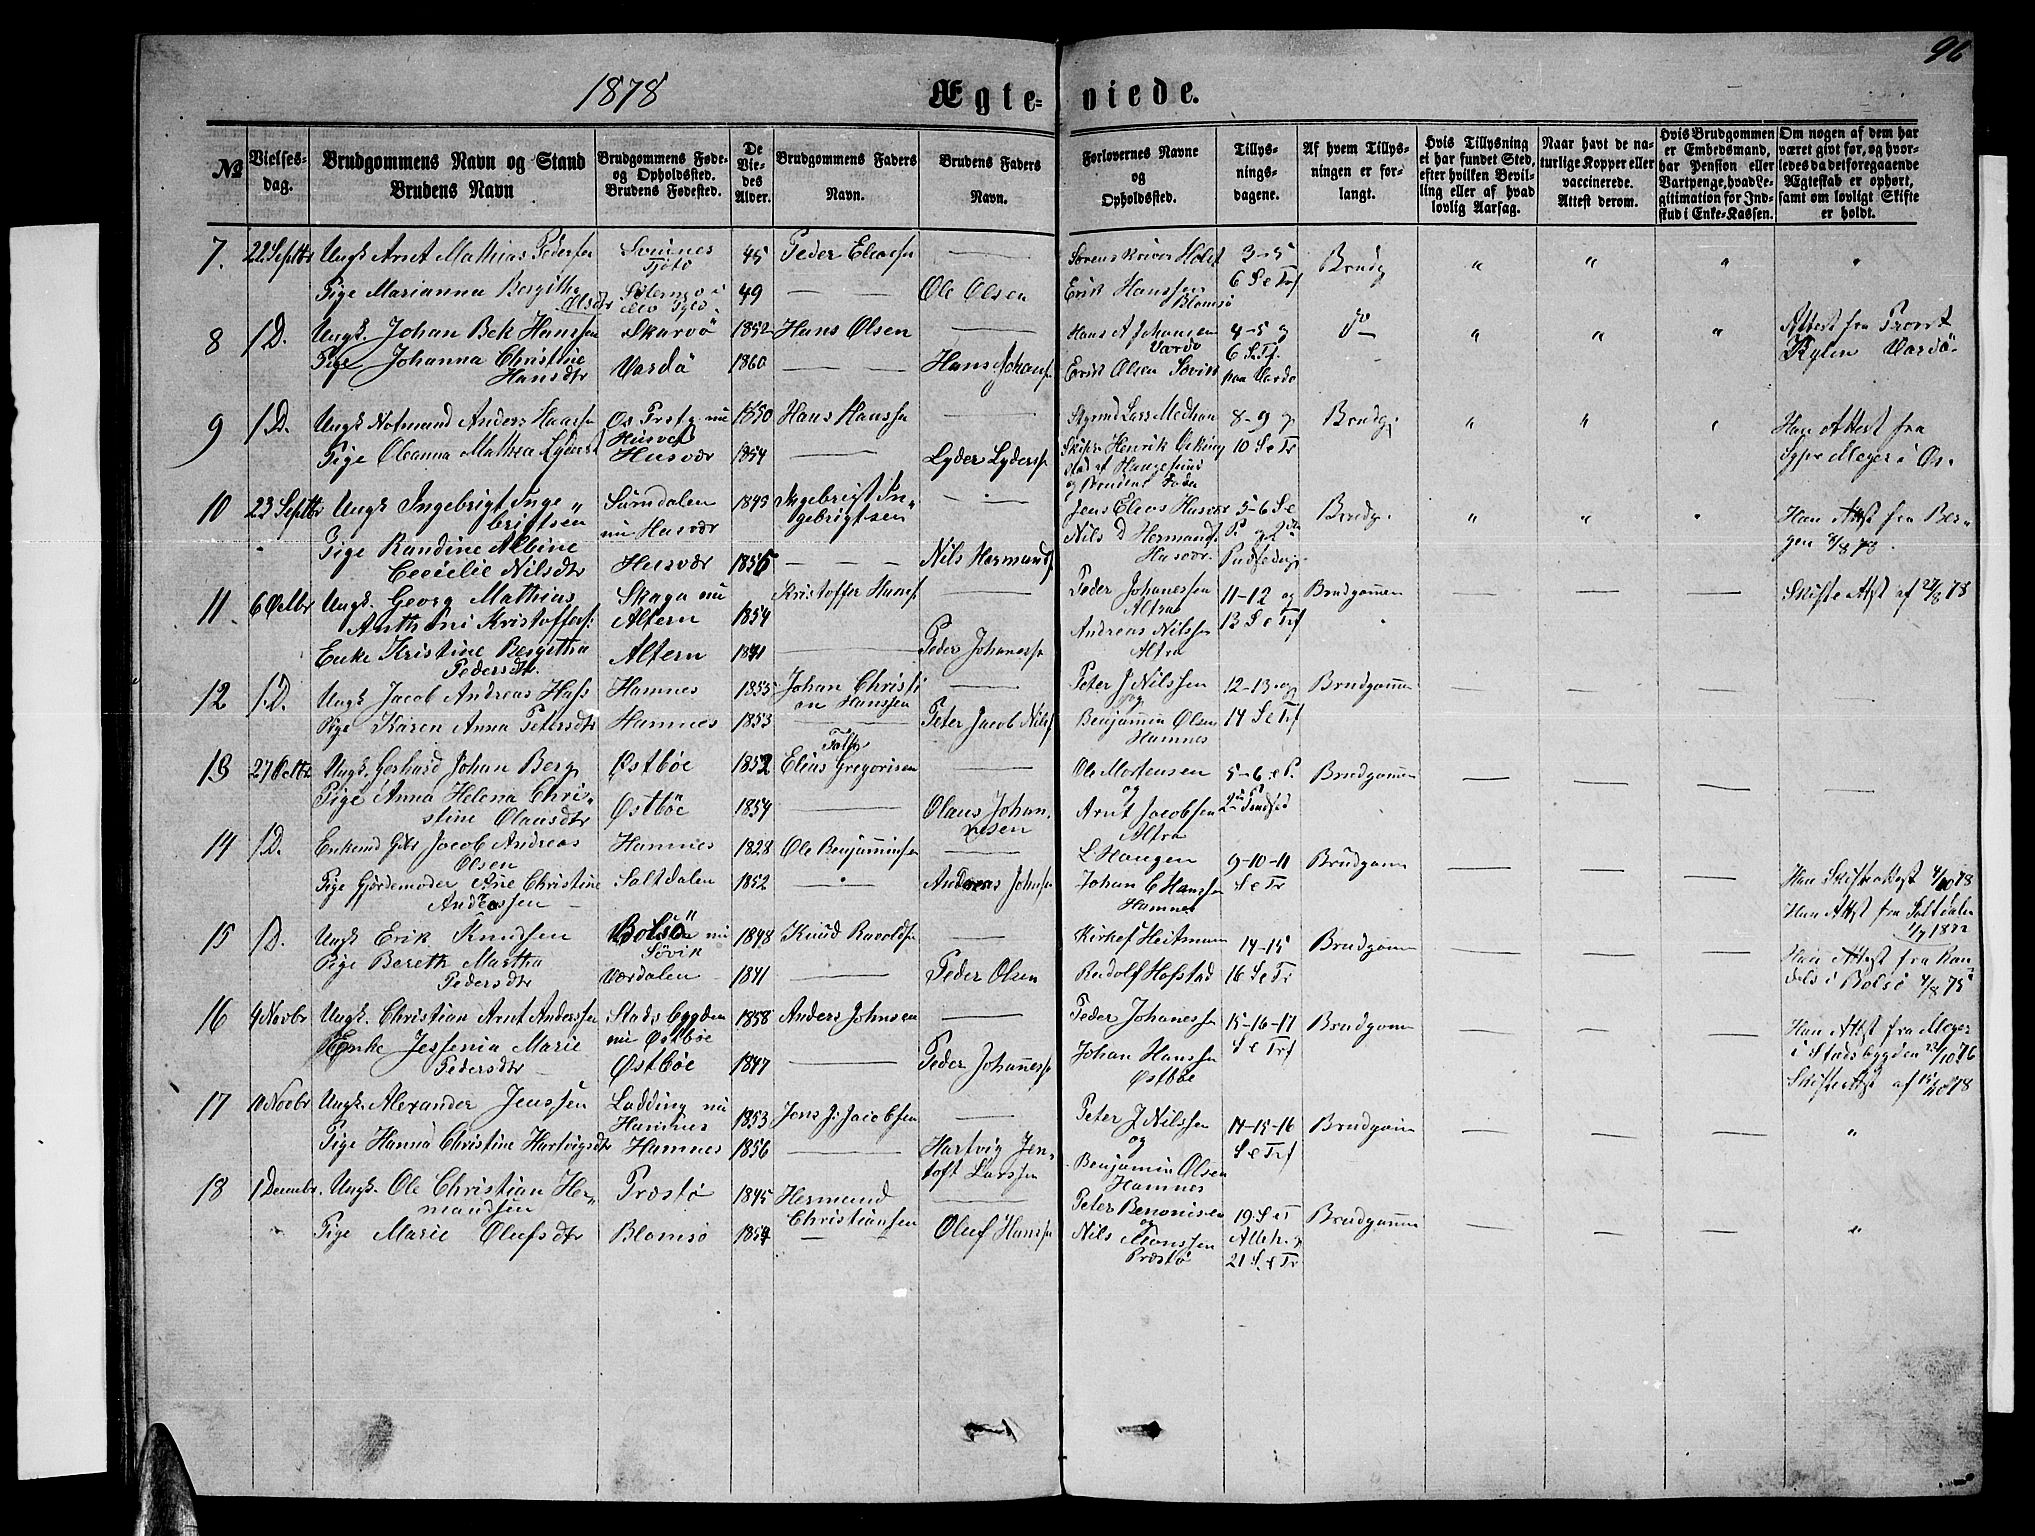 96
1878 Ægte- viede.
No
Vielses-
dag.
Brudgommens Navn og Stand
Brudens Navn
Brudgommens Føde-
og Opholdssted.
Brudens Fødested.
De
Vie-
des
Alder.
Brudgommens Faders
Navn.
Brudens Faders
Navn.
Forlovernes Navne
og
Opholdssted.
Tillys-
nings-
dagene.
Af hvem Tillys-
ningen er for-
langt.
Hvis Tillysning
ei har fundet Sted,
efter hvilken Bevil-
ling eller af hvad
lovlig Aarsag.
Naar havt de na-
turlige Kopper eller
vaccinerede.
Attest derom.
Hvis Brudgommen
er Embedsmand,
har Pension eller
Vartpenge, hvad Le-
gitimation for Ind-
skud i Enke-Kassen.
Om nogen af dem har
været givt før, og hvor-
ledes da det foregaaende
Ægteskab er ophørt,
samt om lovligt Skifte
er holdt.
7. 22 Septbr Ungk Arnt Mathias Pedersen Tjøtø 45 Peder Eliassn Holst 3-5 Brudg
Pige Marianna Bergitha Olsdtr 49 Ole Olsen Erik Hanssen Blomsö 6 S e Trf
8 1 D. Ungk. Johan Bek Hanssen Skarvö 1852 Hans Olsen Hans A Johansen Vardö 4-5 og Do Attest fra Provst
Pige Johanna Christine Hansdtr Vardö 1860 Hans Johans Erik Olsen Sövik 6 S. Tf. paa Vardö Vardö
9 1 D. Ungk Notmand Anders Haassn Os Prstg nu Husvær 1850 Hans Hanssn Styrmd Lars Medhau 8-9 og Brudg: Han Attest fra
Pige Oleanna Mathea Lydersd Husvær 1854 Lyder Lyderss Skipr Henrik 10 S e Tr Meyer i Os-
stad af Haugesund
og Brudens Fader
10 23 Septbr Ungk Ingebrigt Inge-
brigtsen Surndalen
nu Husvær 1843 Ingebrigt In-
gebrigtsen Jens Elias Husvær 5-6 S e Brudg: Han Attst fra Ber-
Pige Randine Albine
Cecilie Nilsdtr Husvær 1856 Nils Hermands Nils D Hermands
Husvær. gen 8/8 78.
11 6 Octbr Ungk. Georg Mathias
Anthoni Kristoffers: Skaga nu
Altern 1854 Kristoffer Hans Peder Johanessen
Altra 11-12 og
13 S e Trf Brudgommen Skifte Attst af 27/8 78
Enke Kristine Bergitha
Pedersdtr. Altern 1841 Peder Johaness Andreas Nilssen
Altra
12 1 D. Ungk Jacob Andreas Hass Hamnes 1855 Johan Christi
an Hanssen Peter J Nilssen
og 12-13 og Brudgommen
Pige Karen Anna Petersdtr Hamnes 1853 Peter Jacob Nilss Benjamin Olsen
Hamnes 14 S e Trf
13 27 Octbr Ungk. Gerhard Johan Berg Østbøe 1852 Elias Gregorisen Ole Mortensen
og 5-6 e P. Brudgommen
Pige Anna Helena Chris-
stine Olausdtr Østbøe 1854 Olaus Johan-
nesen Arnt Jacobsen
Altra
14 1 D. Enkemd Gbr Jacob Andreas
Olsen Hamnes 1828 Ole Benjaminsen L Haugen 9-10-11
S e Tr Brudgomn Han Skifteattest 4/10 78
Pige Gjordemoder Ane Christine
Andreassen Saltdalen 1852 Andreas Johnsn Johan C Hanssen
Hamnes Hun Attst fra Saltdalen
15 1 D. Ungk Erik Knudsen Bolsö nu
Sövik 1848 Knud Kirkes Heitmann 14-15 Brudgomn Han Attst fra
Pige Bereth Martha
Pedersdtr Værdalen 1841 Peder Olsen Rudolf Hofstad 16 S e Tr i Bolsö
16 4 Novbr Ungk. Christian Arnt Anderssen Stadsbygden
nu Østbøe 1858 Anders Johnsen Peder Johaness 15-16-17
S e Trf Brudgomn Han Attst fra Meyer
Enke Jessenia Marie
Pedersdtr Østbøe 1847 Peder Johanness Johan Hanssen
Østbøe i Stadsbygden 23/10 76
Skifteattst af 15/10 78
17 10 Novbr Ungk. Alexander Jenssen Lødding nu
Hamnes 1853 Jens J: Jacobsen Peter J Nilssen
og 14-15-16
S e Trf Brudgomn
Pige Hanna Christine Hartvigsdtr Hamnes 1856 Hartvig Jen-
toft Larssen Benjamin Olsen
Hamnes
18 1 Decembr. Ungk. Ole Christian Her-
mandsen Præstø 1845 Hermand
Christiansen Peter Benonisen
og 19 S e T Brudgommen
Pige Marie Olufsdtr Blomsö 1854 Oluf Hanss Nils Monssen
Præstø Alleh. og
21 S e Tr